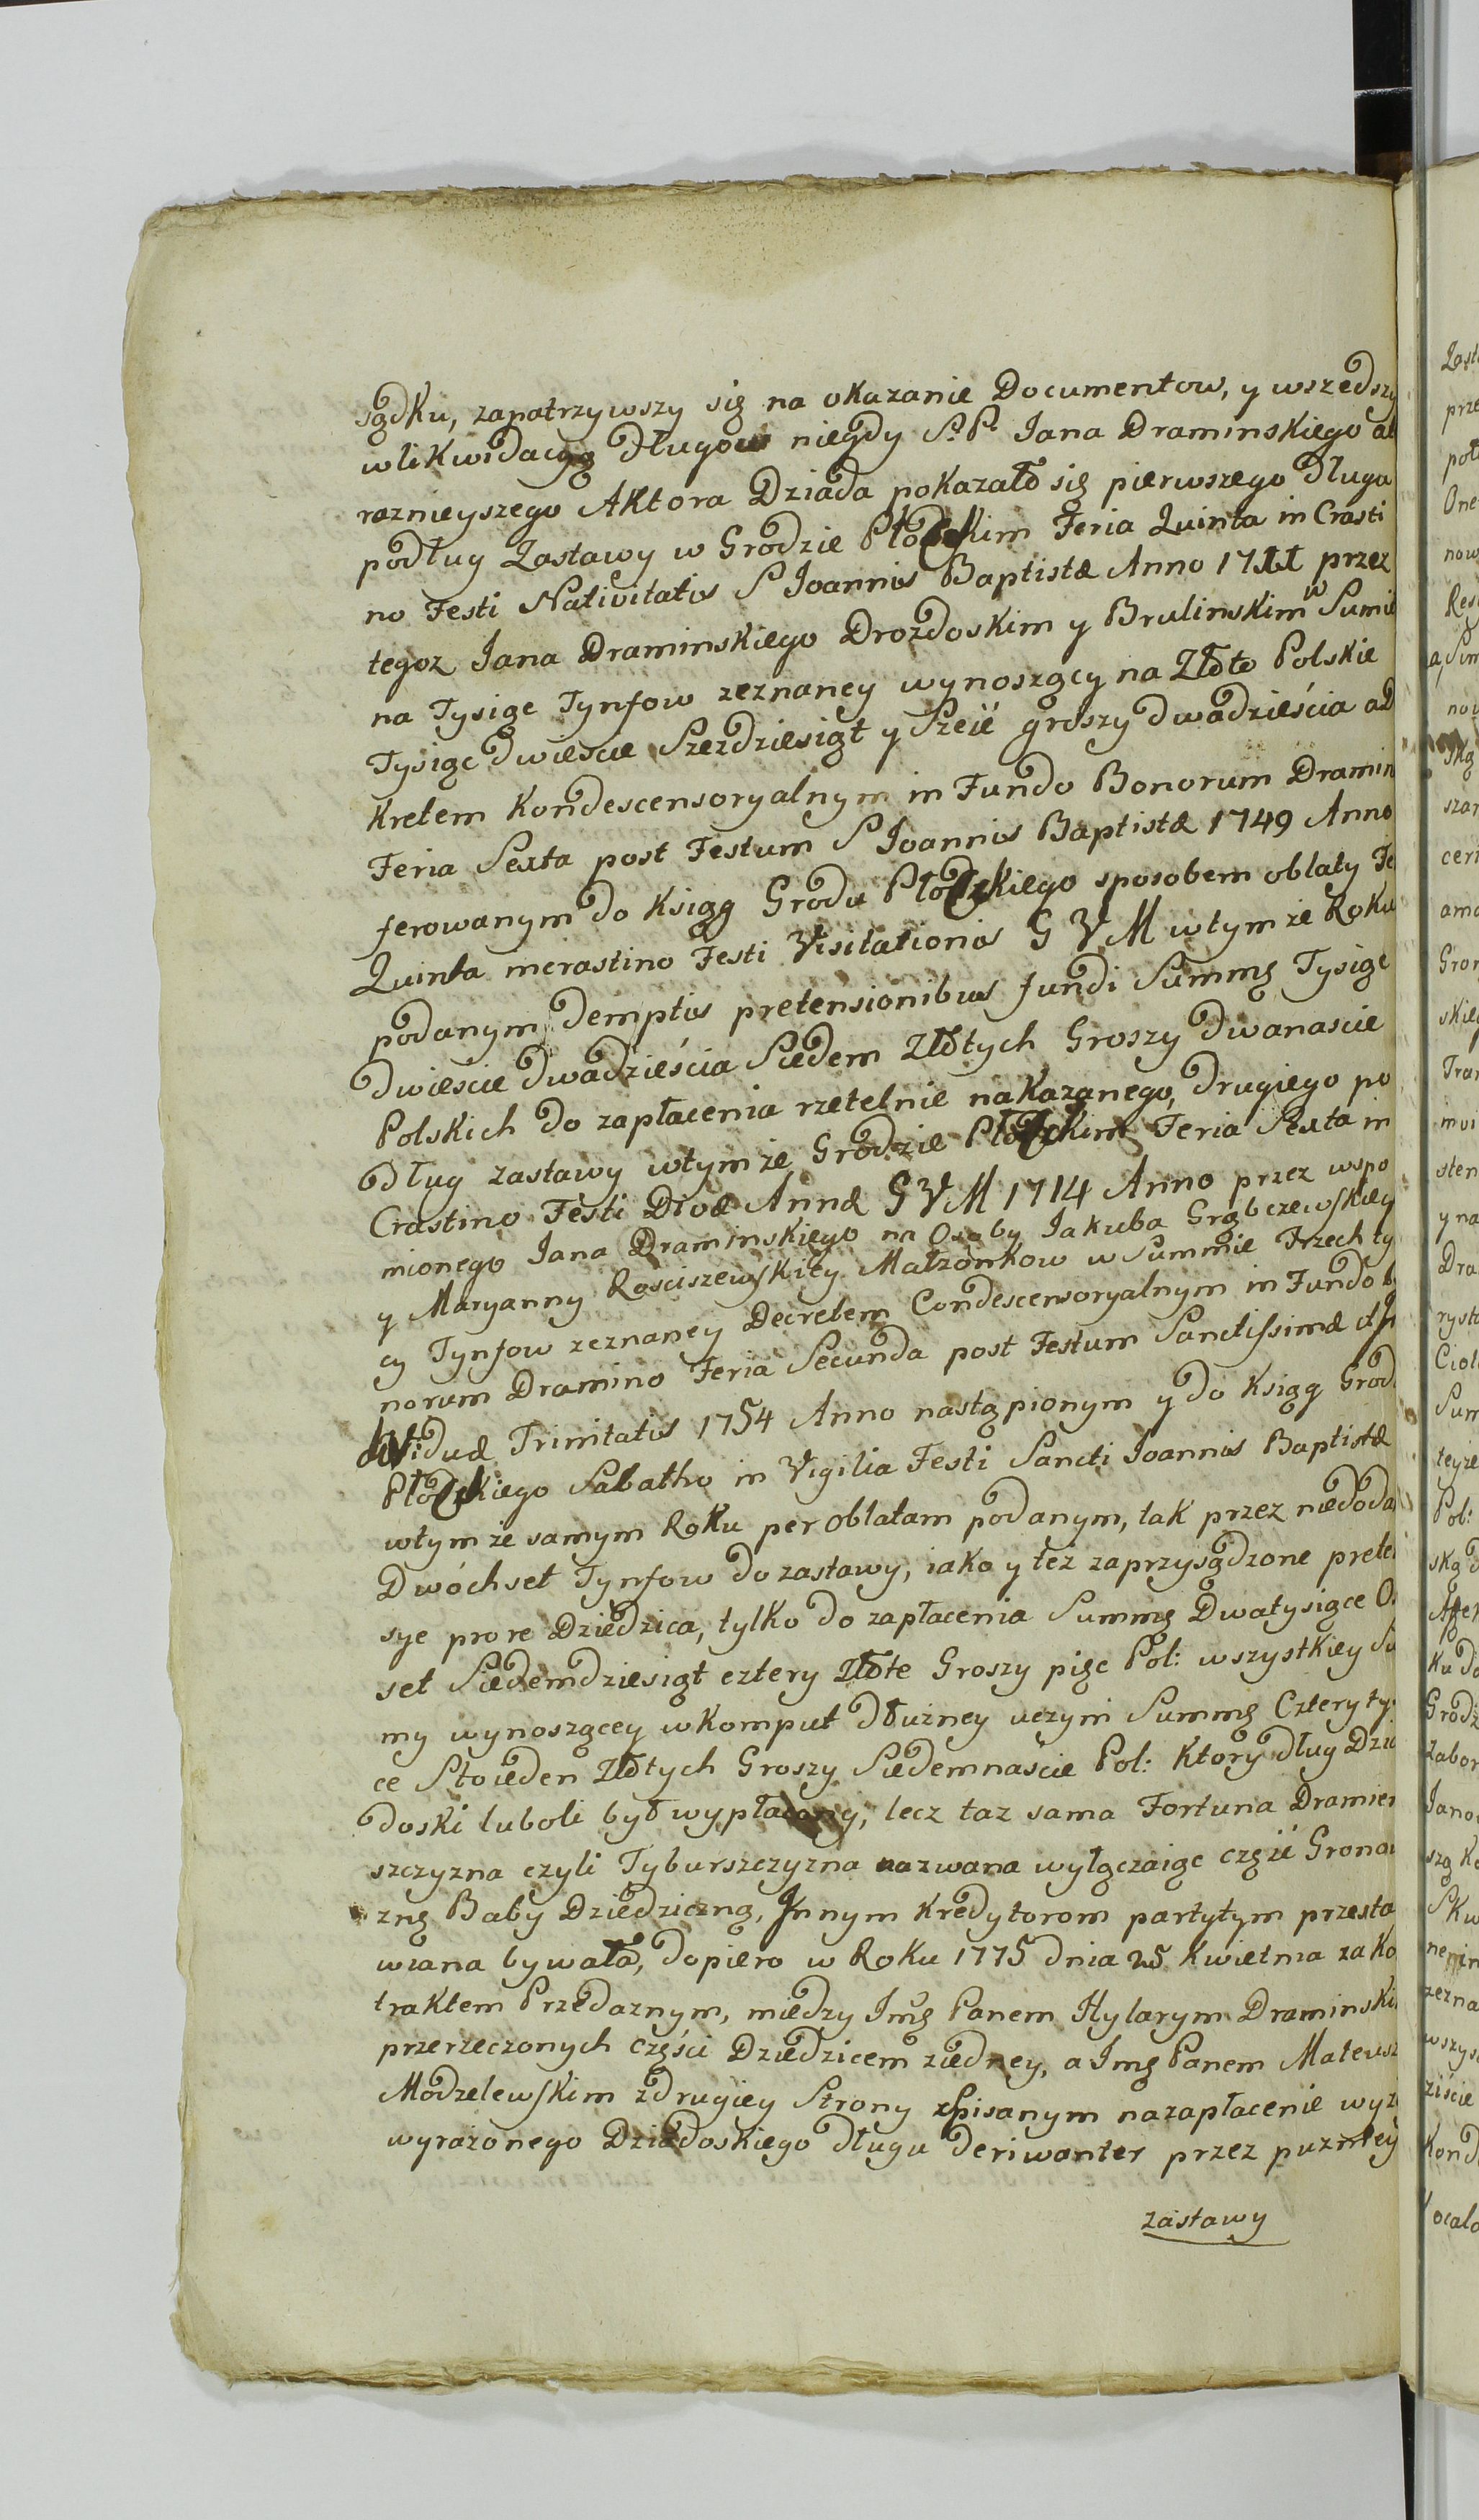 sądku, zapatrzywszy się na okazanie Documentow, y wszedszy
w likwidacyą Długow niegdy S: P: Jana Draminskiego al
raznieyszego Aktora Dziada pokazało się pierwszego Długa
podług Zastawy w Grodzie Płockim Feria Quinta in Crasti
no Festi Nativitatis S Joannis Baptistæ Anno 1711 przez
tegoz Jana Draminskiego Drozdoskim y Brulinskim w Sumie
na Tysiąc Tynfow zeznaney wynoszący na Złote Polskie
Tysiąc dwieście Szezdziesiąt y Szeić groszy dwadzieścia a D
kretem Kondescensoryalnym in Fundo Bonorum Dramin
Feria Sexta post Festum S Joannis Baptistæ 1749 Anno
ferowanym do Ksiąg Grodu Płockiego sposobem oblaty Fe
Quinta incrastino Festi Visitationis G V M wtym że Roku
podanym demptis pretensionibus fundi Summę Tysiąc
dwiescie dwadzieścia Siedem Złotych Groszy dwanascie
Polskich do zapłacenia rzetelnie nakazanego, drugiego po
dług zastawy wtym że Grodzie Płockim Feria Sexta in
Crastino Festi Divæ Annæ G V M 1714 Anno przez wspo
mionego Jana Draminskiego na Osoby Jakuba Grąbczewskieg
y Maryanny Rosciszewskiey Małzonkow w Summie Trzech ty
cy Tynfow zeznaney Decretem Condescensoryalnym in Fundo b
norum Dramino Feria Secunda post Festum Sanctissimæ et In
dividuæ Trinitatis 1754 Anno nastąpionym y do Ksiąg Grod
Płockiego Sabatho in Vigilia Festi Sancti Joannis Baptistæ
wtym że samym Roku per oblatam podanym, tak przez niedoda
Dwóchset Tynfow do zastawy, iako y też zaprzysądzone prete
sye pro re Dziedzica, tylko do zapłacenia Summę Dwatysiące O
set Siedemdziesiąt cztery Złote Groszy pięc Pol: wszystkiey Su
my wynoszącey w komput dłużney uczyni Summę Cztery ty
ce Stoieden Złotych Groszy Siedemnaście Pol: Który dług Dzia
doski luboli był wypłacony, lecz taz sama Fortuna Dramien
szczyzna czyli Tyburszczyzna nazwana wyłączaiąc częźć Gronow
znę Baby Dziedziczną, Jnnym Kredytorom partytym przesta
wiana bywała, dopiero w Roku 1775 dnia 25 Kwietnia za Ko
traktem Przedaznym, miedzy Jmę Panem Hylarym Draminski
przerzeczonych części Dziedzicem ziedney, a Jmę Panem Mateusz
Modzelewskim z drugiey Strony spisanym nazapłacenie wyz
wyrażonego Dziadoskiego długu deriwanter przez puzniey
zastawy